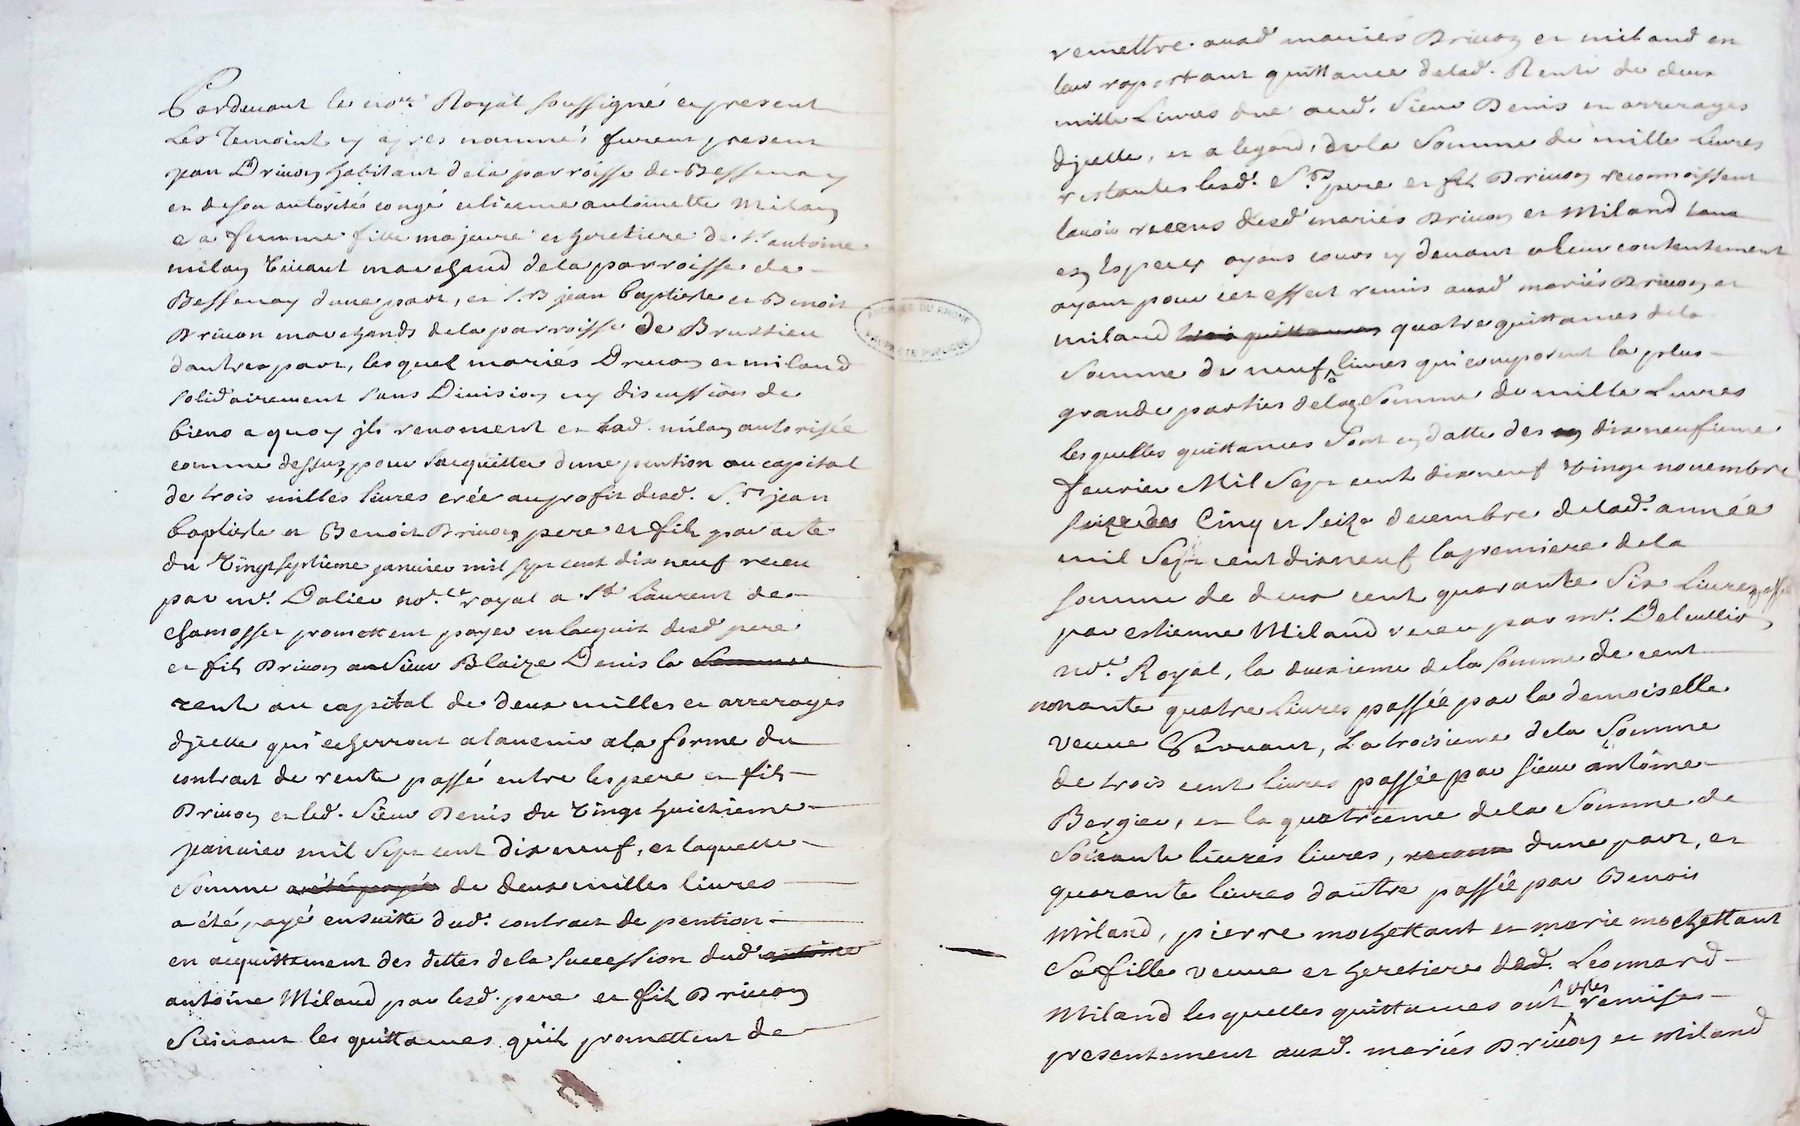 Pardevant le no.re Royal soussigné et present
Les Temoint cy apres nommés furent present
jean Drivon habitant de la parroisse de Bessenay
et de son autorité congé et licence antoinette Milan
Sa femme fille majeure et heretiere de Sr antoine
milan vivant marchand de la parroisse de
Bessenay d'une part, et S.rs jean baptiste et Benoit
Drivon marchands de la parroisse de Brussieu
dautres part, lesquel mariés Drivon et miland
solidairement sans Division ny discussion de
biens a quoy jls renoncent et lad. milan autorisée
comme dessus, pour sacquitter d'une pention au capital
de trois milles livres crée au profit desd. S.rs jean
baptiste et Benoit Drivon pere et fils par acte
du vingt septieme janvier mil sept cent dix neuf receu
par m.e Dalier no.re royal a St Laurent de
chamosset promettent payer en lacquit desd pere
et fils Drivon au Sieur Blaize Denis la somme
rente au capital de deux milles et arrerages
djcelle qui echerront a lavenir a la forme du
contrat de rente passé entre les pere et fils
Drivon et led. Sieur Denis du vingt huictieme
janvier mil sept cent dix neuf, et laquelle
Somme a été payée de deux milles livres
a été payé ensuitte dud. contrat de pention
en acquittement des dettes de la succession dud antoine
antoine Miland par lesd. pere et fils Drivon
Suivant les quittances qu'il promettent de
remettre ausd mariés Drivon et miland en
leur raportant quittance de lad. Rente de deux
mille Livres due aud. Sieur Denis et arrerages
djcelle, et a legard de la Somme de mille livres
restantes lesd. S.rs pere et fils Drivon reconnoissent
lavoir receus desd mariés Drivon et Miland tant
en Especes ayans cours cy devant a leur contentement
ayant pour cet effect remis ausd mariés Drivon et
miland trois quittances quatre quittances de la
Somme de neuf livres qui composent la plus
grande parties de la Somme de mille Livres
lesquelles quittances sont en datte des dix neufieme
fevrier Mil Sept cent dix neuf vingt novembre
Cinq et seize decembre de lad. année
mil Sept cent dix neuf la premiere de la
somme de deux cent quarante Six livres
par estienne Miland receu par m.e
no.re Royal, la deuxieme de la somme de cent
nonante quatre Livres passée par la demoiselle
veuve, La troisieme de la Somme
de trois cent livres passée par sieur antoine
Bergier, et la quatrieme de la Somme de
Soixante livres livres, dune part, et
quarante livres dautre passée par Benoit
Miland, pierre mochettant et marie mochettant
Sa fille veuve et heretiere dud. Leonnard
Miland lesquelles quittances ont etes remises
presentement ausd. mariés Drivon et Miland
ARCHIVES DU RHONE
PROPRIETE PUBLIQUE